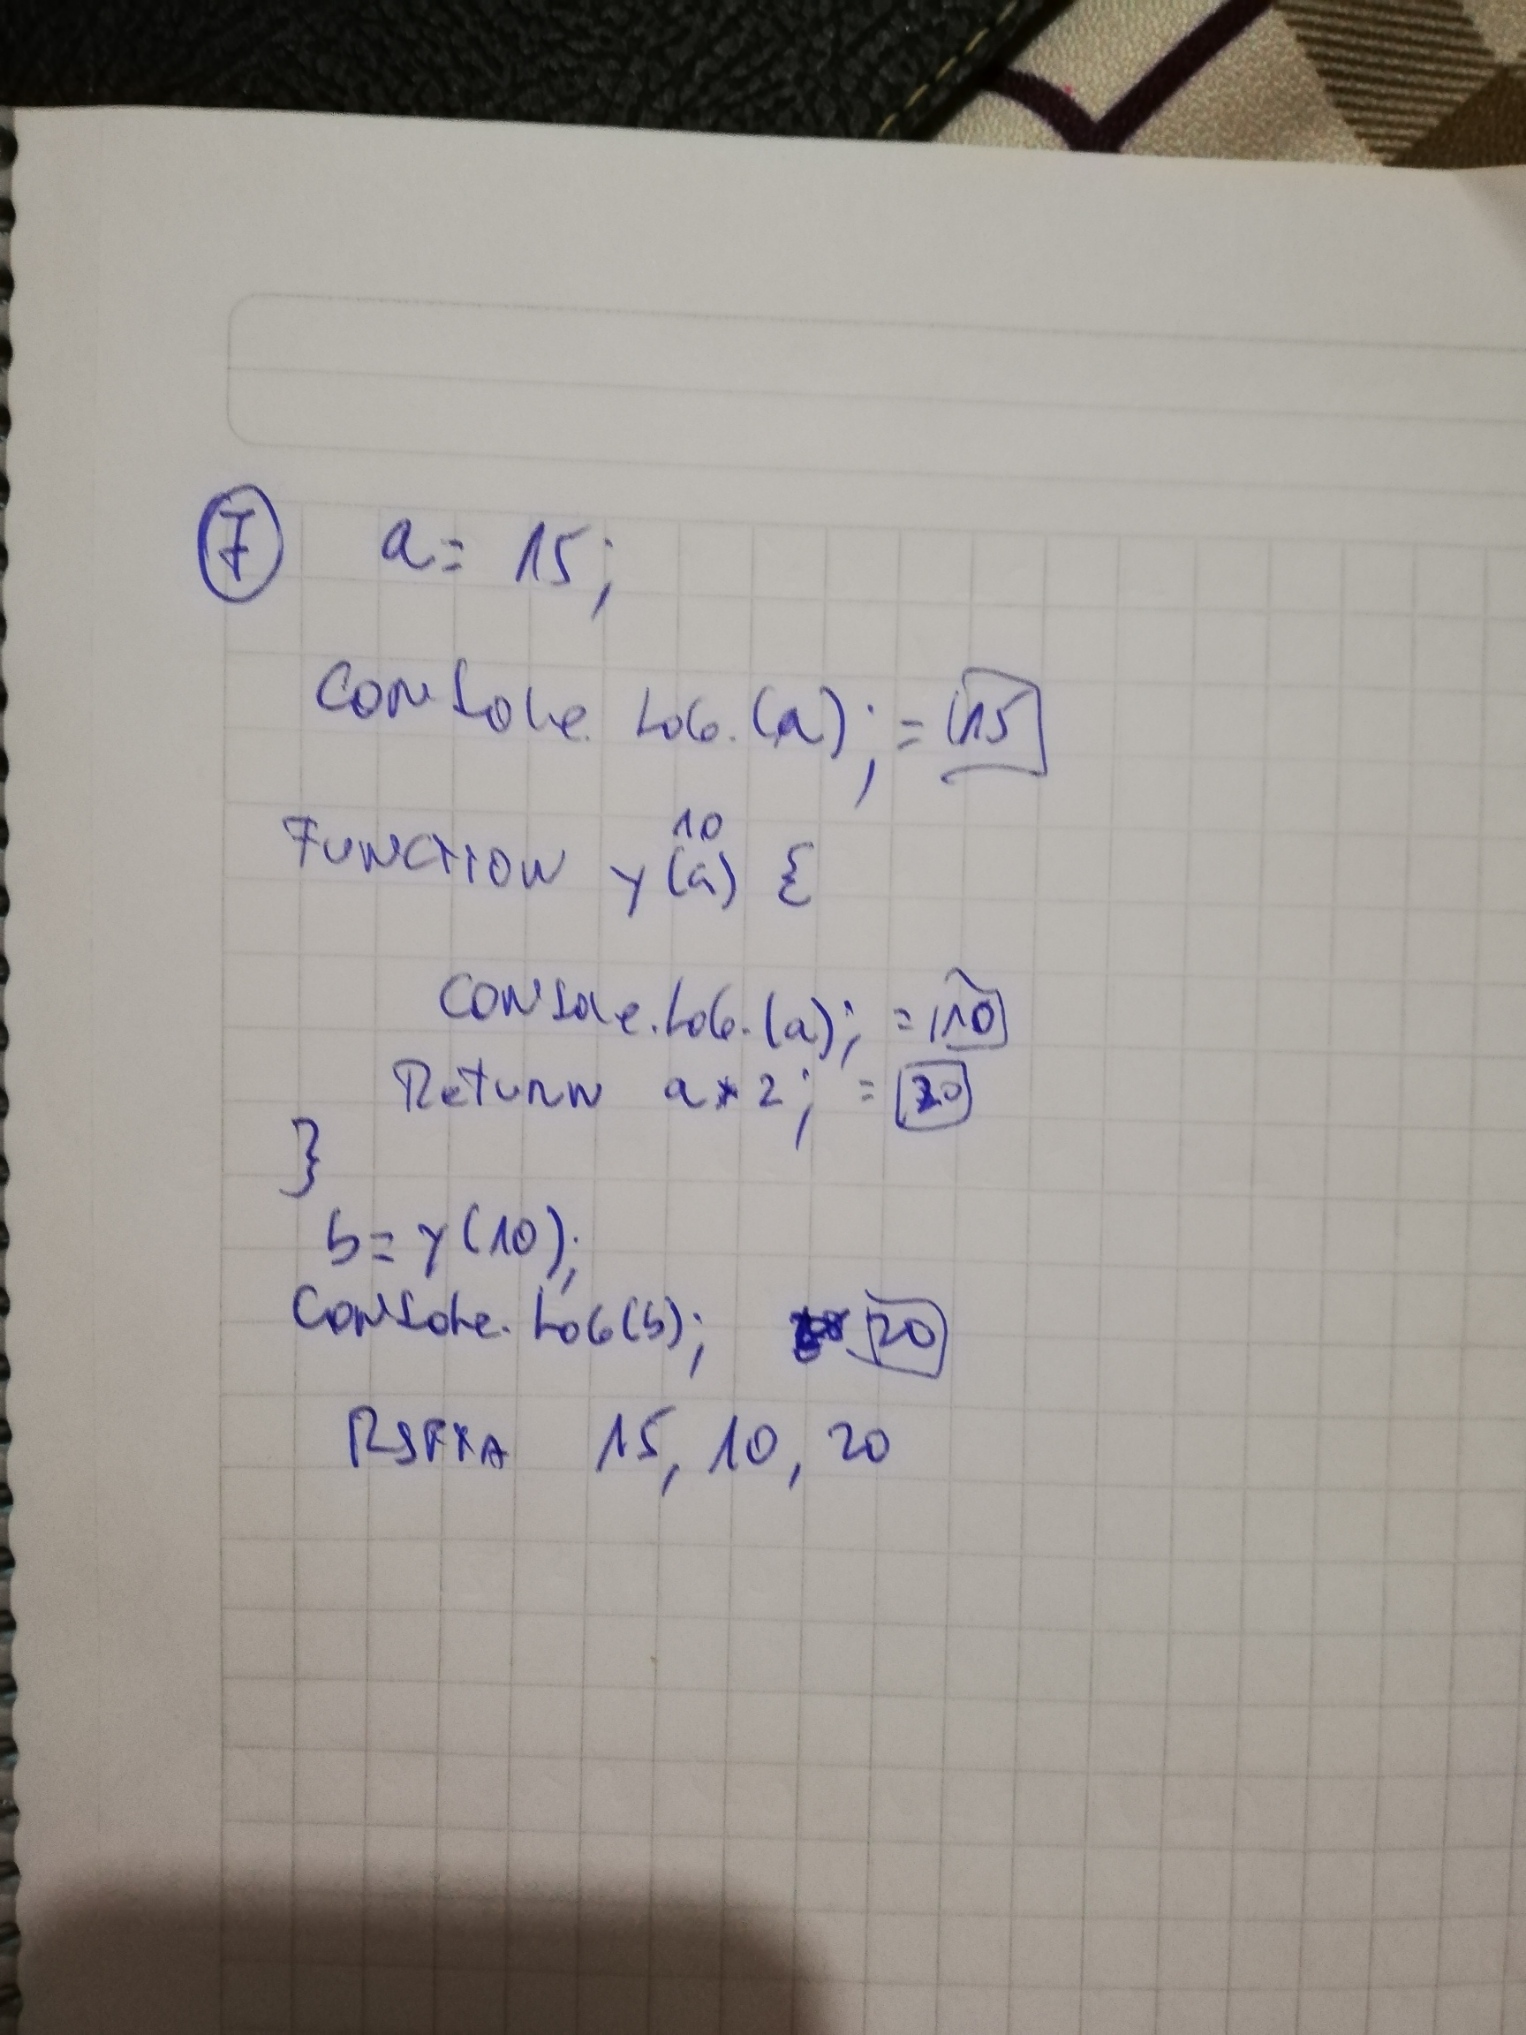 7 a = 15;
Console.Log.(a); = 15
10
Function y(a) {
Console.Log.(a); = 10
Return a * 2; = 20
}
b = y(10);
Console.Log(b); 20
15, 10, 20